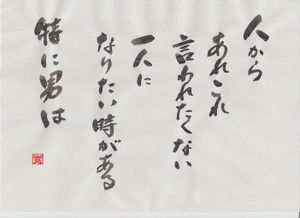 人から
あれこれ
言われたくない
一人に
なりたい時がある
特に男は
寛